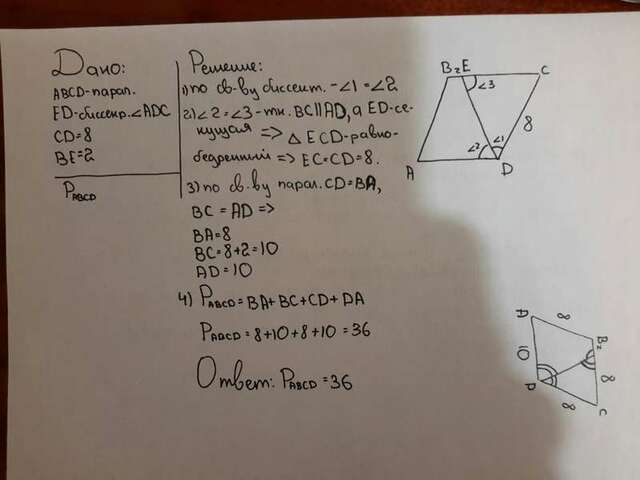 Дано:
ABCD-парал.
ED-биссектр.∠ADC
CD=8
BE=2
P_ABCD
Решение:
1) по св-ву биссект. - ∠1=∠2
2) ∠2=∠3-т.к. BC||AD, а ED-се-
кущая => △ ECD-равно-
бедренный => EC=CD=8.
3) по св.ву парал. CD=BA,
BC=AD=>
BA=8
BC=8+2=10
AD=10
4) P_ABCD=BA+BC+CD+DA
P_ABCD=8+10+8+10=36
Ответ: P_ABCD=36
B 2 E C
∠3
8
∠2 ∠1
A D
A 8 B 2
10 8
D 8 C